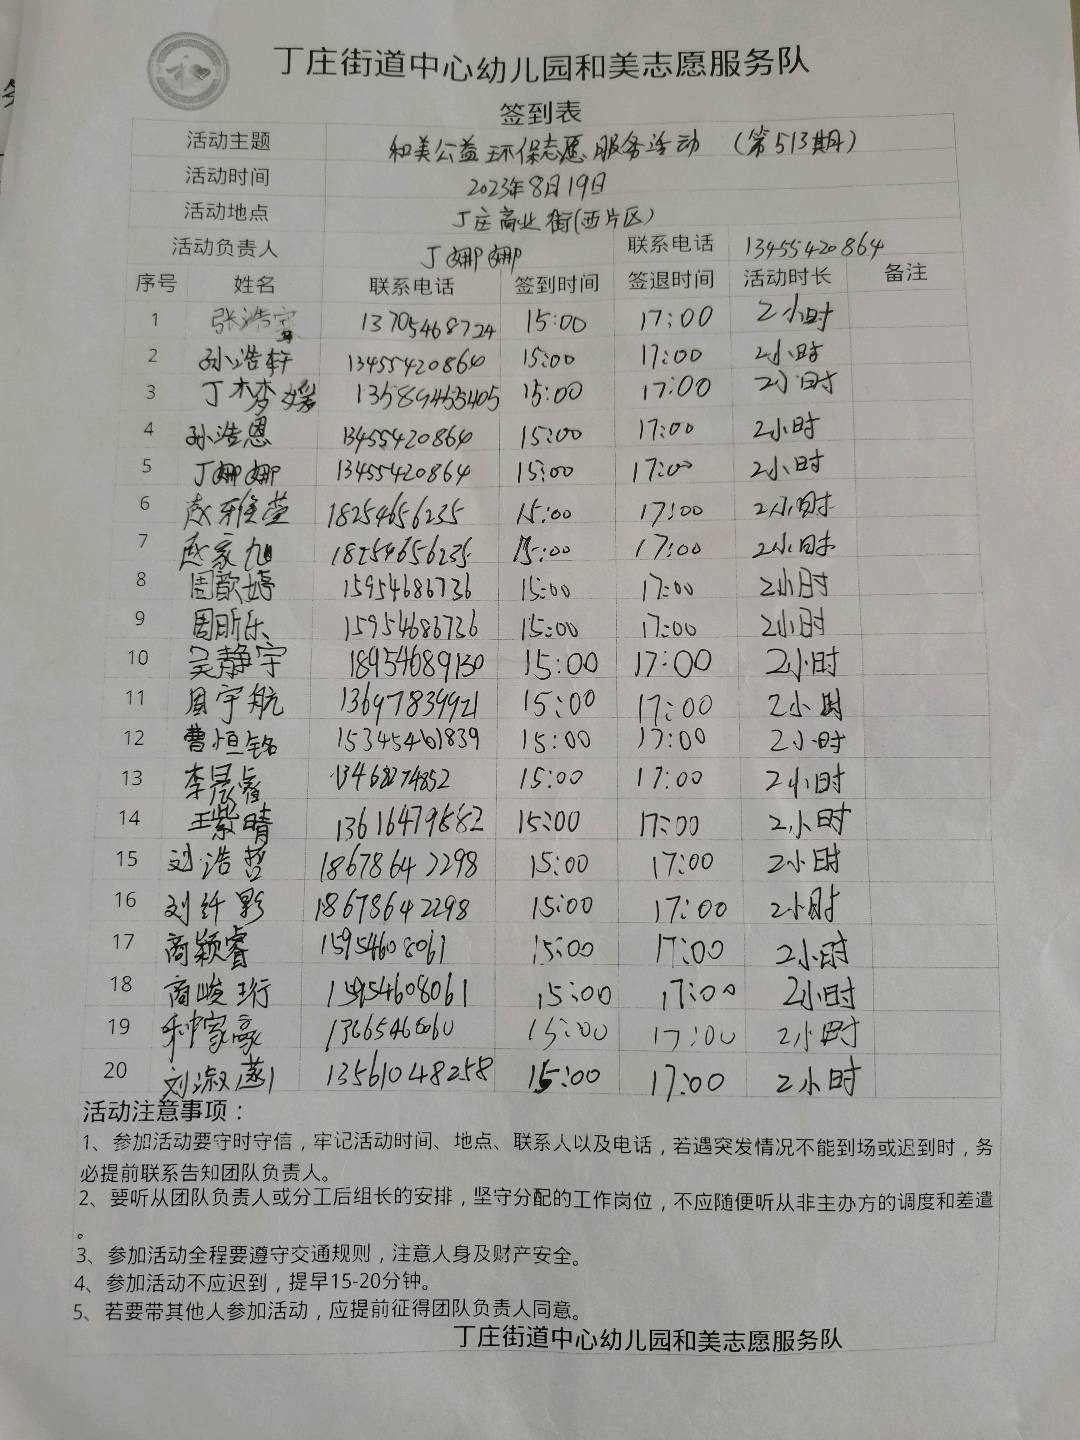 丁庄街道中心幼儿园和美志愿服务队
签到表
活动主题 和美公益环保志愿服务活动（第513期）
活动时间 2023年8月19日
活动地点 丁庄商业街(西片区)
活动负责人 丁娜娜 联系电话 13455420864
序号 姓名 联系电话 签到时间 签退时间 活动时长 备注
1 张浩宇 13705468724 15:00 17:00 2小时
2 孙浩轩 13455420864 15:00 17:00 2小时
3 丁梦媛 13589455405 15:00 17:00 2小时
4 孙浩恩 13455420864 15:00 17:00 2小时
5 丁娜娜 13455420864 15:00 17:00 2小时
6 赵雅萱 18254656235 15:00 17:00 2小时
7 赵家旭 18254656235 15:00 17:00 2小时
8 周歆婷 15954686736 15:00 17:00 2小时
9 周昕乐 15954686736 15:00 17:00 2小时
10 吴静宇 18954689130 15:00 17:00 2小时
11 周宇航 13697839921 15:00 17:00 2小时
12 曹恒铭 15345461839 15:00 17:00 2小时
13 李晨睿 13468274852 15:00 17:00 2小时
14 王紫晴 13616479882 15:00 17:00 2小时
15 刘浩哲 18678642298 15:00 17:00 2小时
16 刘纤影 18678642298 15:00 17:00 2小时
17 商颖睿 15954608061 15:00 17:00 2小时
18 商峻珩 15954608061 15:00 17:00 2小时
19 家豪 15:00 17:00 2小时
20 刘淑 13561048258 15:00 17:00 2小时
活动注意事项：
1、参加活动要守时守信，牢记活动时间、地点、联系人以及电话，若遇突发情况不能到场或迟到时，务
必提前联系告知团队负责人。
2、要听从团队负责人或分工后组长的安排，坚守分配的工作岗位，不应随便听从非主办方的调度和差遣
。
3、参加活动全程要遵守交通规则，注意人身及财产安全。
4、参加活动不应迟到，提早15-20分钟。
5、若要带其他人参加活动，应提前征得团队负责人同意。
丁庄街道中心幼儿园和美志愿服务队